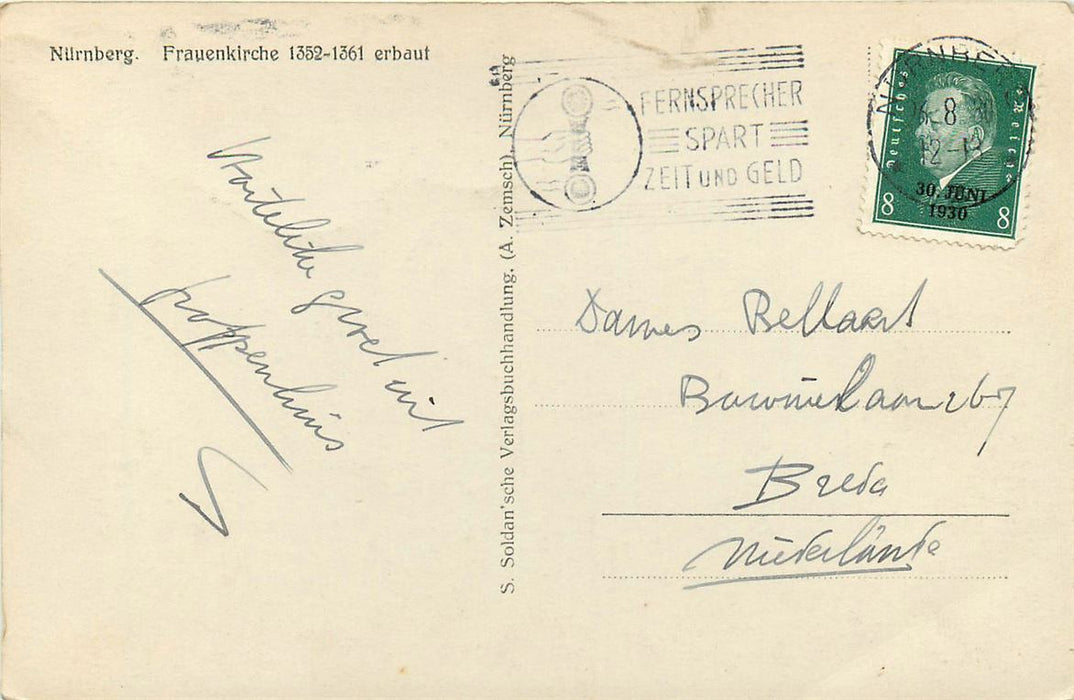 Nürnberg. Frauenkirche 1352-1361 erbaut
Hartelike groet uit
S. Soldan'sche Verlagsbuchhandlung, (A. Zemsch), Nürnberg
FERNSPRECHER
SPART
ZEIT UND GELD
NÜRNBERG
8
12-13
Deutsches Reich
30. JUNI
1930
8 8
Dames Bellaert
Breda
Niederlände